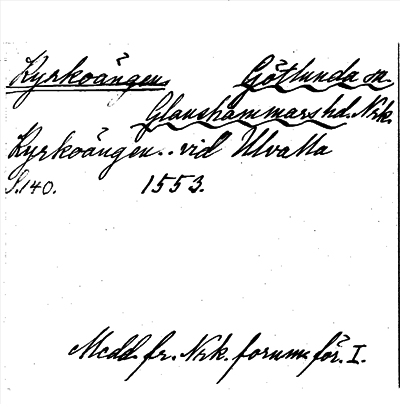 Kyrkoängen Götlunda sn.
Glanshammars hd. Nrk.
Kyrkoängen.. vid Ulvatta
S.140. 1553.
Medd. fr. Nrk. fornm. för. I.